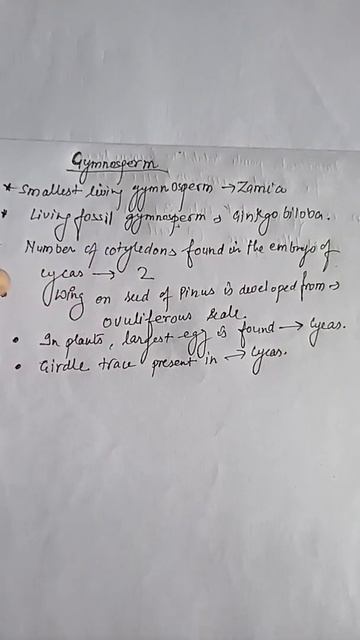 Gymnosperm
* Smallest living gymnosperm → Zamia
* Living fossil gymnosperm → Ginkgo biloba.
Number of cotyledons found in the embryo of
cycas → 2
Wing on seed of Pinus is developed from →
ovuliferous scale.
• In plants, largest egg is found → Cycas.
• Girdle trace present in → Cycas.